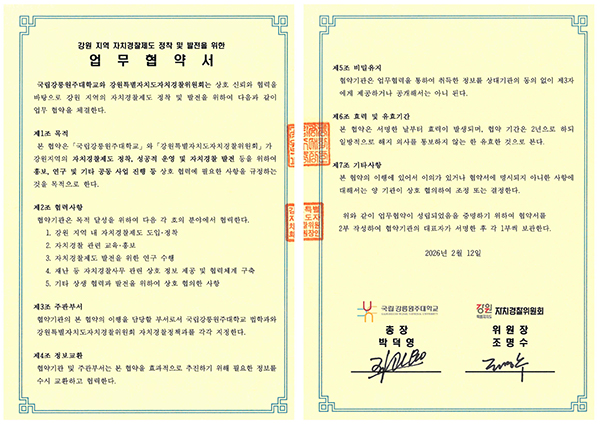 강원 지역 자치경찰제도 정착 및 발전을 위한
업 무 협 약 서
국립강릉원주대학교와 강원특별자치도자치경찰위원회는 상호 신뢰와 협력을
바탕으로 강원 지역의 자치경찰제도 정착 및 발전을 위하여 다음과 같이
업무 협약을 체결한다.
제1조 목적
본 협약은 「국립강릉원주대학교」와 「강원특별자치도자치경찰위원회」가
강원지역의 자치경찰제도 정착, 성공적 운영 및 자치경찰 발전 등을 위하여
홍보, 연구 및 기타 공동 사업 진행 등 상호 협력에 필요한 사항을 규정하는
것을 목적으로 한다.
제2조 협력사항
협약기관은 목적 달성을 위하여 다음 각 호의 분야에서 협력한다.
1. 강원 지역 내 자치경찰제도 도입·정착
2. 자치경찰 관련 교육·홍보
3. 자치경찰제도 발전을 위한 연구 수행
4. 재난 등 자치경찰사무 관련 상호 정보 제공 및 협력체계 구축
5. 기타 상생 협력과 발전을 위하여 상호 협의한 사항
제3조 주관부서
협약기관의 본 협약의 이행을 담당할 부서로서 국립강릉원주대학교 법학과와
강원특별자치도자치경찰위원회 자치경찰정책과를 각각 지정한다.
제4조 정보교환
협약기관 및 주관부서는 본 협약을 효과적으로 추진하기 위해 필요한 정보를
수시 교환하고 협력한다.
제5조 비밀유지
협약기관은 업무협력을 통하여 취득한 정보를 상대기관의 동의 없이 제3자
에게 제공하거나 공개해서는 아니 된다.
제6조 효력 및 유효기간
본 협약은 서명한 날부터 효력이 발생되며, 협약 기간은 2년으로 하되
일방적으로 해지 의사를 통보하지 않는 한 유효한 것으로 본다.
제7조 기타사항
본 협약의 이행에 있어서 이의가 있거나 협약서에 명시되지 아니한 사항에
대해서는 양 기관이 상호 협의하여 조정 또는 결정한다.
위와 같이 업무협약이 성립되었음을 증명하기 위하여 협약서를
2부 작성하여 협약기관의 대표자가 서명한 후 각 1부씩 보관한다.
2026년 2월 12일
국립강릉원주대학교
총 장
박 덕 영
강원 자치경찰위원회
위 원 장
조 명 수